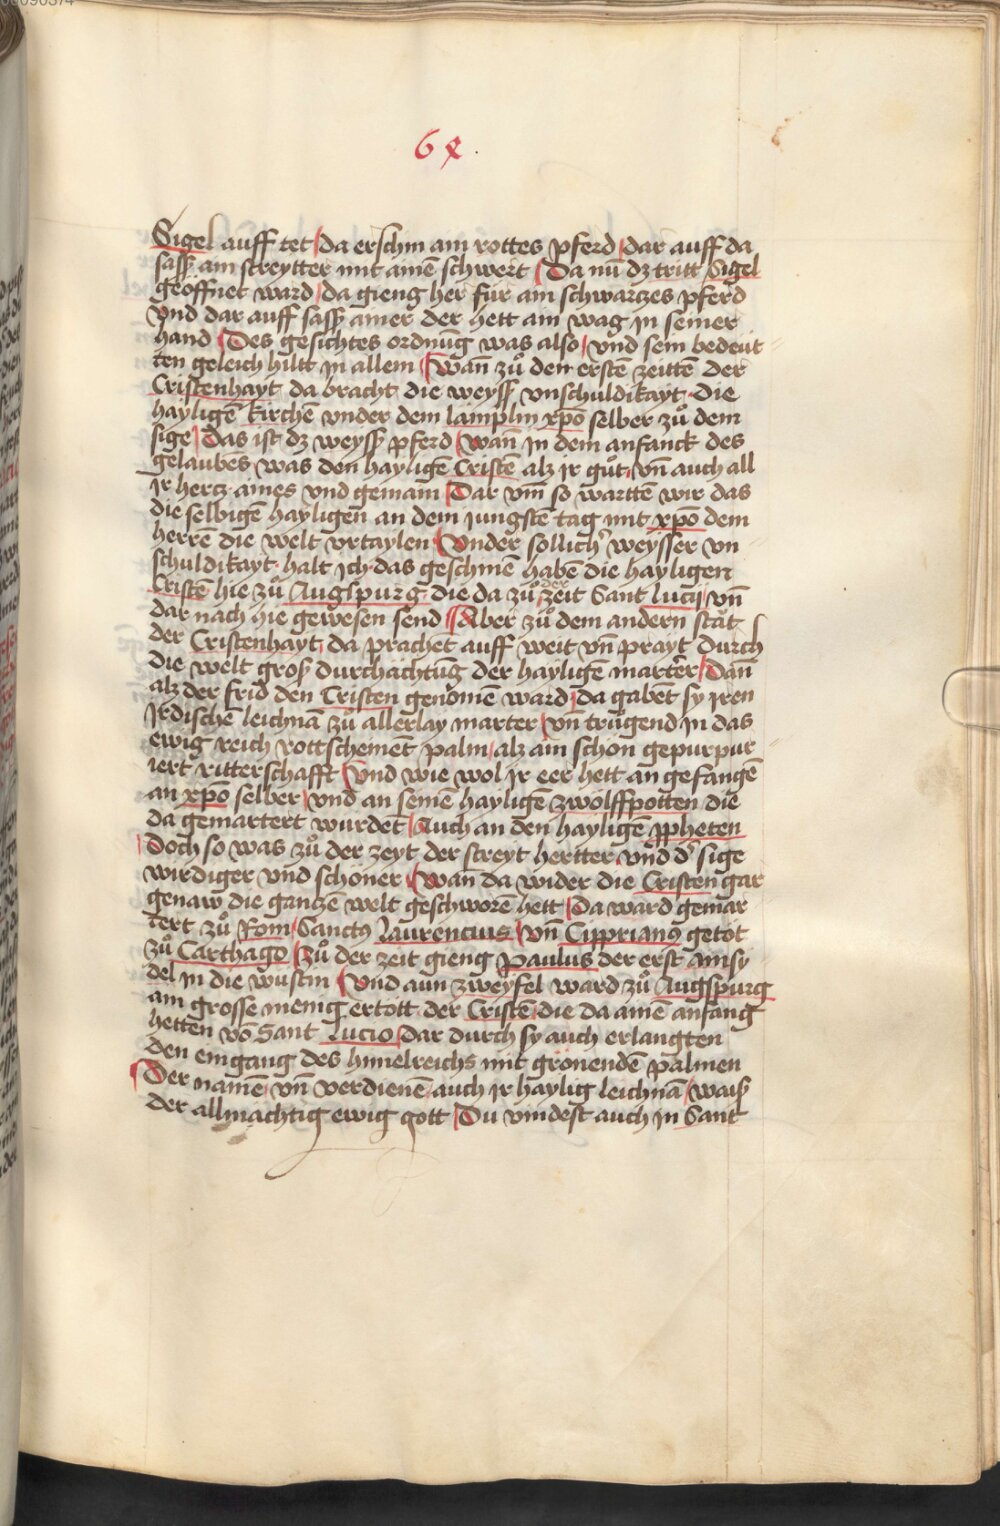 6x.
Sigel auff tet da erschin ain rottes pferd dar auff da
sass ain streytter mit ainē schwert Da nū dz tritt Sigel
geöffnet ward da gieng her für ain schwartzes pferd
Vnd dar auff sass ainer der hett ain wag in seiner
hand Des gesichtes ordnūg was also vnd sein bedeut
ten geleich hillt in allem Wan̄ zů den erstē zeitten der
Cristenhayt da bracht die weyss vnschuldikayt die
hayligē kirchē vnder dem lamplin xpō selber zů dem
sige Das ist dz weyss pferd wan̄ in dem anfanck des
gelaubēs was den hayligē Cristē alz ir gůt vn̄ auch all
Ir hertz aines vnd gemain Dar vm̄ so warttē wir das
die selbigē hayligen an dem iungstē tag mit xpō dem
herrē die welt vrtaylen Vnder sollich weysser vn
schuldikayt halt ich das geschinē habē die hayligen
Cristē hie zů Augspurg die da zů der zeit Sant Lucij vn̄
dar nach hie gewesen send Aber zů dem andern stāt
der Cristenhayt da prachet auff weit vn̄ prayt durch
die welt gros durchächtūg der hayligē martrer Dan̄
alz der frid den Cristen genōmē ward da gabēt sy iren
Irdischē leichnā zů allerlay marter vn̄ trůgend in das
ewig reich rottscheinēt palm alz ain schön gepurpur
iert ritterschafft Vnd wie wol ir eer hett an gefangē
an xpō selber vnd an seinē hayligē zwölffpotten die
da gemartert wurdēt Auch an den hayligē ꝓpheten
Doch so was zů der zeyt der streyt hertter vnd d' sige
wirdiger vnd schöner Wan̄ da wider die Cristen gar
genaw die gantzē welt geschworē hett Da ward gemar
tert zů Rom Sanctꝰ Laurencius vn̄ Ciprianꝰ getöt
zů Carthago zů der zeit gieng Paulus der erst ainsy
del in die wüstin Vnd aun zweyfel ward zů Augspurg
ain grosse menig ertött der Cristē die da ainē anfang
hetten vō Sant Lucio dar durch sy auch erlangten
den eingang des himelreichs mit grönendē palmen
Der namē vn̄ verdienē auch ir haylig leichnā waiß
der allmächtig ewig gott Du vindest auch in Sant